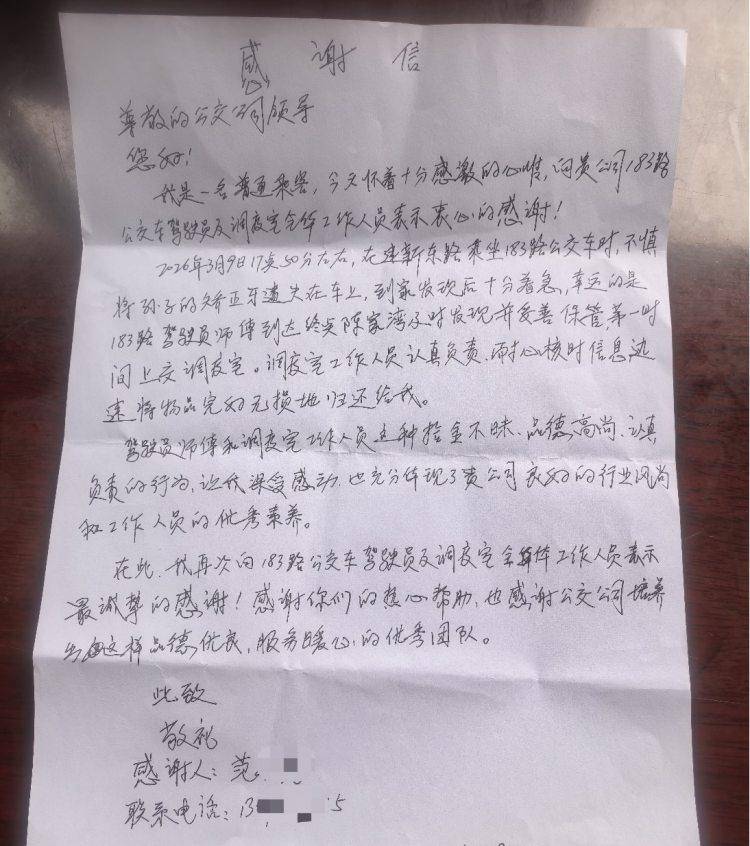 感谢信
尊敬的公交公司领导
您好！
我是一名普通乘客，今天怀着十分感激的心情，向贵公司183路
公交车驾驶员及调度室全体工作人员表示衷心的感谢！
2026年3月9日17点50分左右，在建新东路乘坐183路公交车时，不慎
将孙子的矫正牙遗失在车上，到家发现后十分着急，幸运的是
183路驾驶员师傅到达终点陈家湾及时发现并妥善保管，第一时
间上交调度室。调度室工作人员认真负责、耐心核时信息迅
速将物品完好无损地归还给我。
驾驶员师傅和调度室工作人员这种拾金不昧、品德高尚、认真
负责的行为，让我深受感动，也充分体现了贵公司良好的行业风尚
和工作人员的优秀素养。
在此，我再次向183路公交车驾驶员及调度室全体工作人员表示
最诚挚的感谢！感谢你们的热心帮助，也感谢公交公司培养
出这样品德优良，服务暖心的优秀团队。
此致
敬礼
感谢人：范
联系电话：13 5